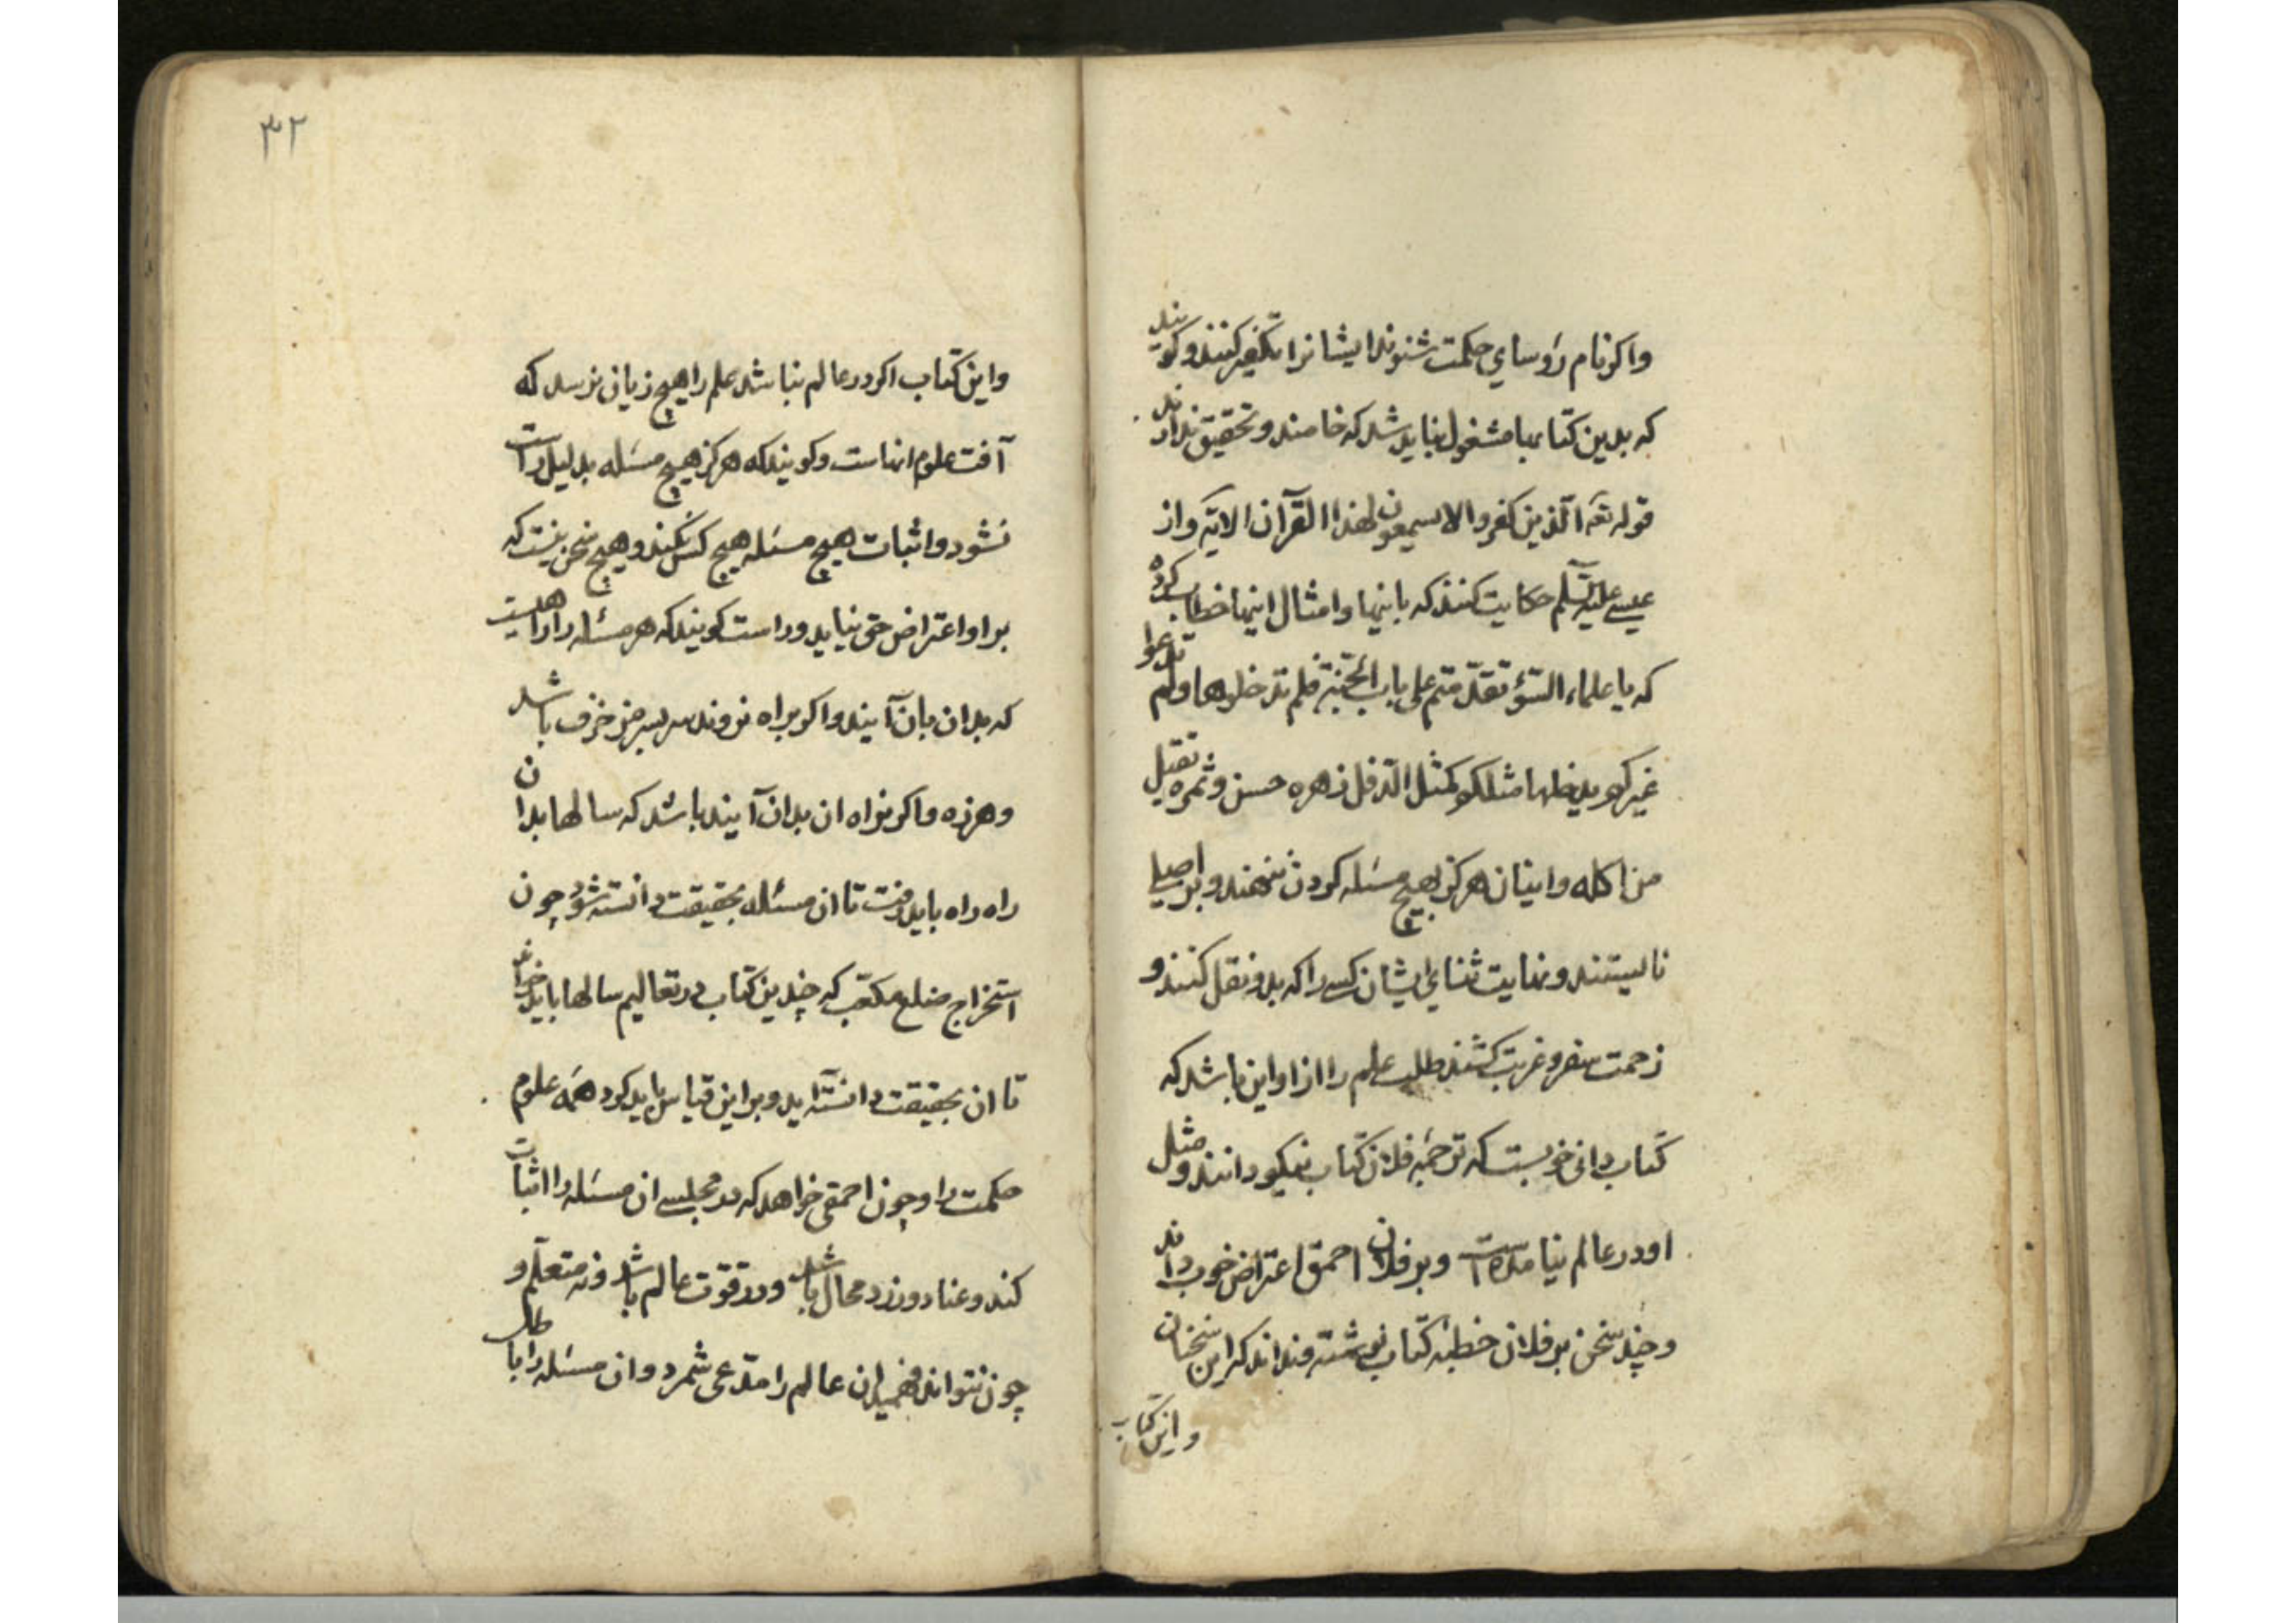 واکر نام رؤسای حکمت شنوند ایشانرا تکفیر کنند و کویند
که بدین کتابها مشغول نباید شد که خامند و تحقیق ندارند
قوله تعه الذین کفروا لا تسمعون لهذا القرآن الآیة و از
عیسی علیه السلم حکایت کنند که باینها و امثال اینها خطاب کرده
که یا علماء السوء تقدمتم علی باب الجنة فلم تدخلوها و لم تدعوا
غیرکم یدخلها مثلکم کمثل الدفل زهره حسن و ثمره تقتل
من اکله و اینان هرکز بهیچ مسئله کردن ننهند و بر اصلی
نایستند و نهایت ثنای ایشان کسی را که بدو نقل کنند و
زحمت سفر و غربت کشند طلب علم را از او این باشد که
کتاب دانی خوبست که ترجمه فلان کتاب نیکو دانند و مثل
او در عالم نیامده است و بر فلان احمق اعتراض خوب داند
و چند سخن بر فلان خطبه کتاب نوشته و نداند که این سخنان
و این کتاب
۳۲
و این کتاب اکر در عالم نباشد علم را هیچ زیان نرسد که
آفت علوم اینهاست و کویند که هرکز هیچ مسئله بدلیل راست
نشود و اثبات هیچ مسئله هیچ کس نکند و هیچ سخن نیست که
بر او اعتراض حق نیاید و راست کویند که هر مسئله را راهیست
که بدان بآن آیند و اکر براه نروند سر بسر مزخرف باشد
و هرزه و اکر براه ان بدان آیند باشد که سالها بدان
راه راه باید رفت تا ان مسئله بحقیقت دانسته شود چون
استخراج ضلع مکعب که چندین کتاب در تعالیم سالها باید خواند
تا ان بحقیقت دانسته آید و بر این قیاس باید کرد همه علوم
حکمت را و چون احمقی خواهد که در مجلسی ان مسئله را اثبات
کند و عناد ورزد محال باشد و در قوت عالم باشد و نه متعلم و
چون نتواند فهمید ان عالم را مدعی شمرد و ان مسئله را باطل